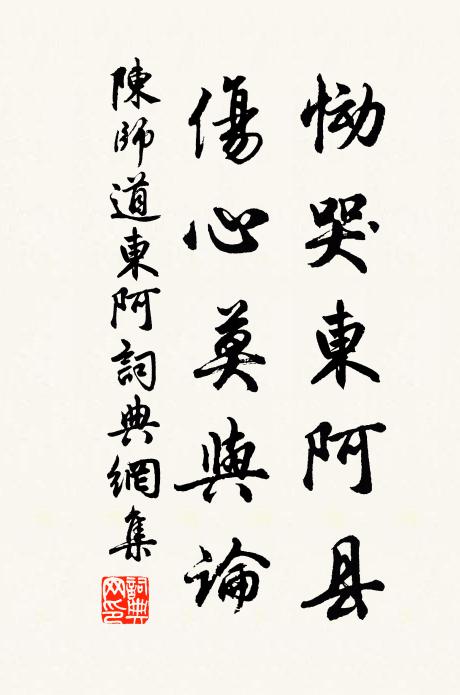 恸哭東阿县
傷心莫與論
陳師道東阿詞典網集
詞典網印